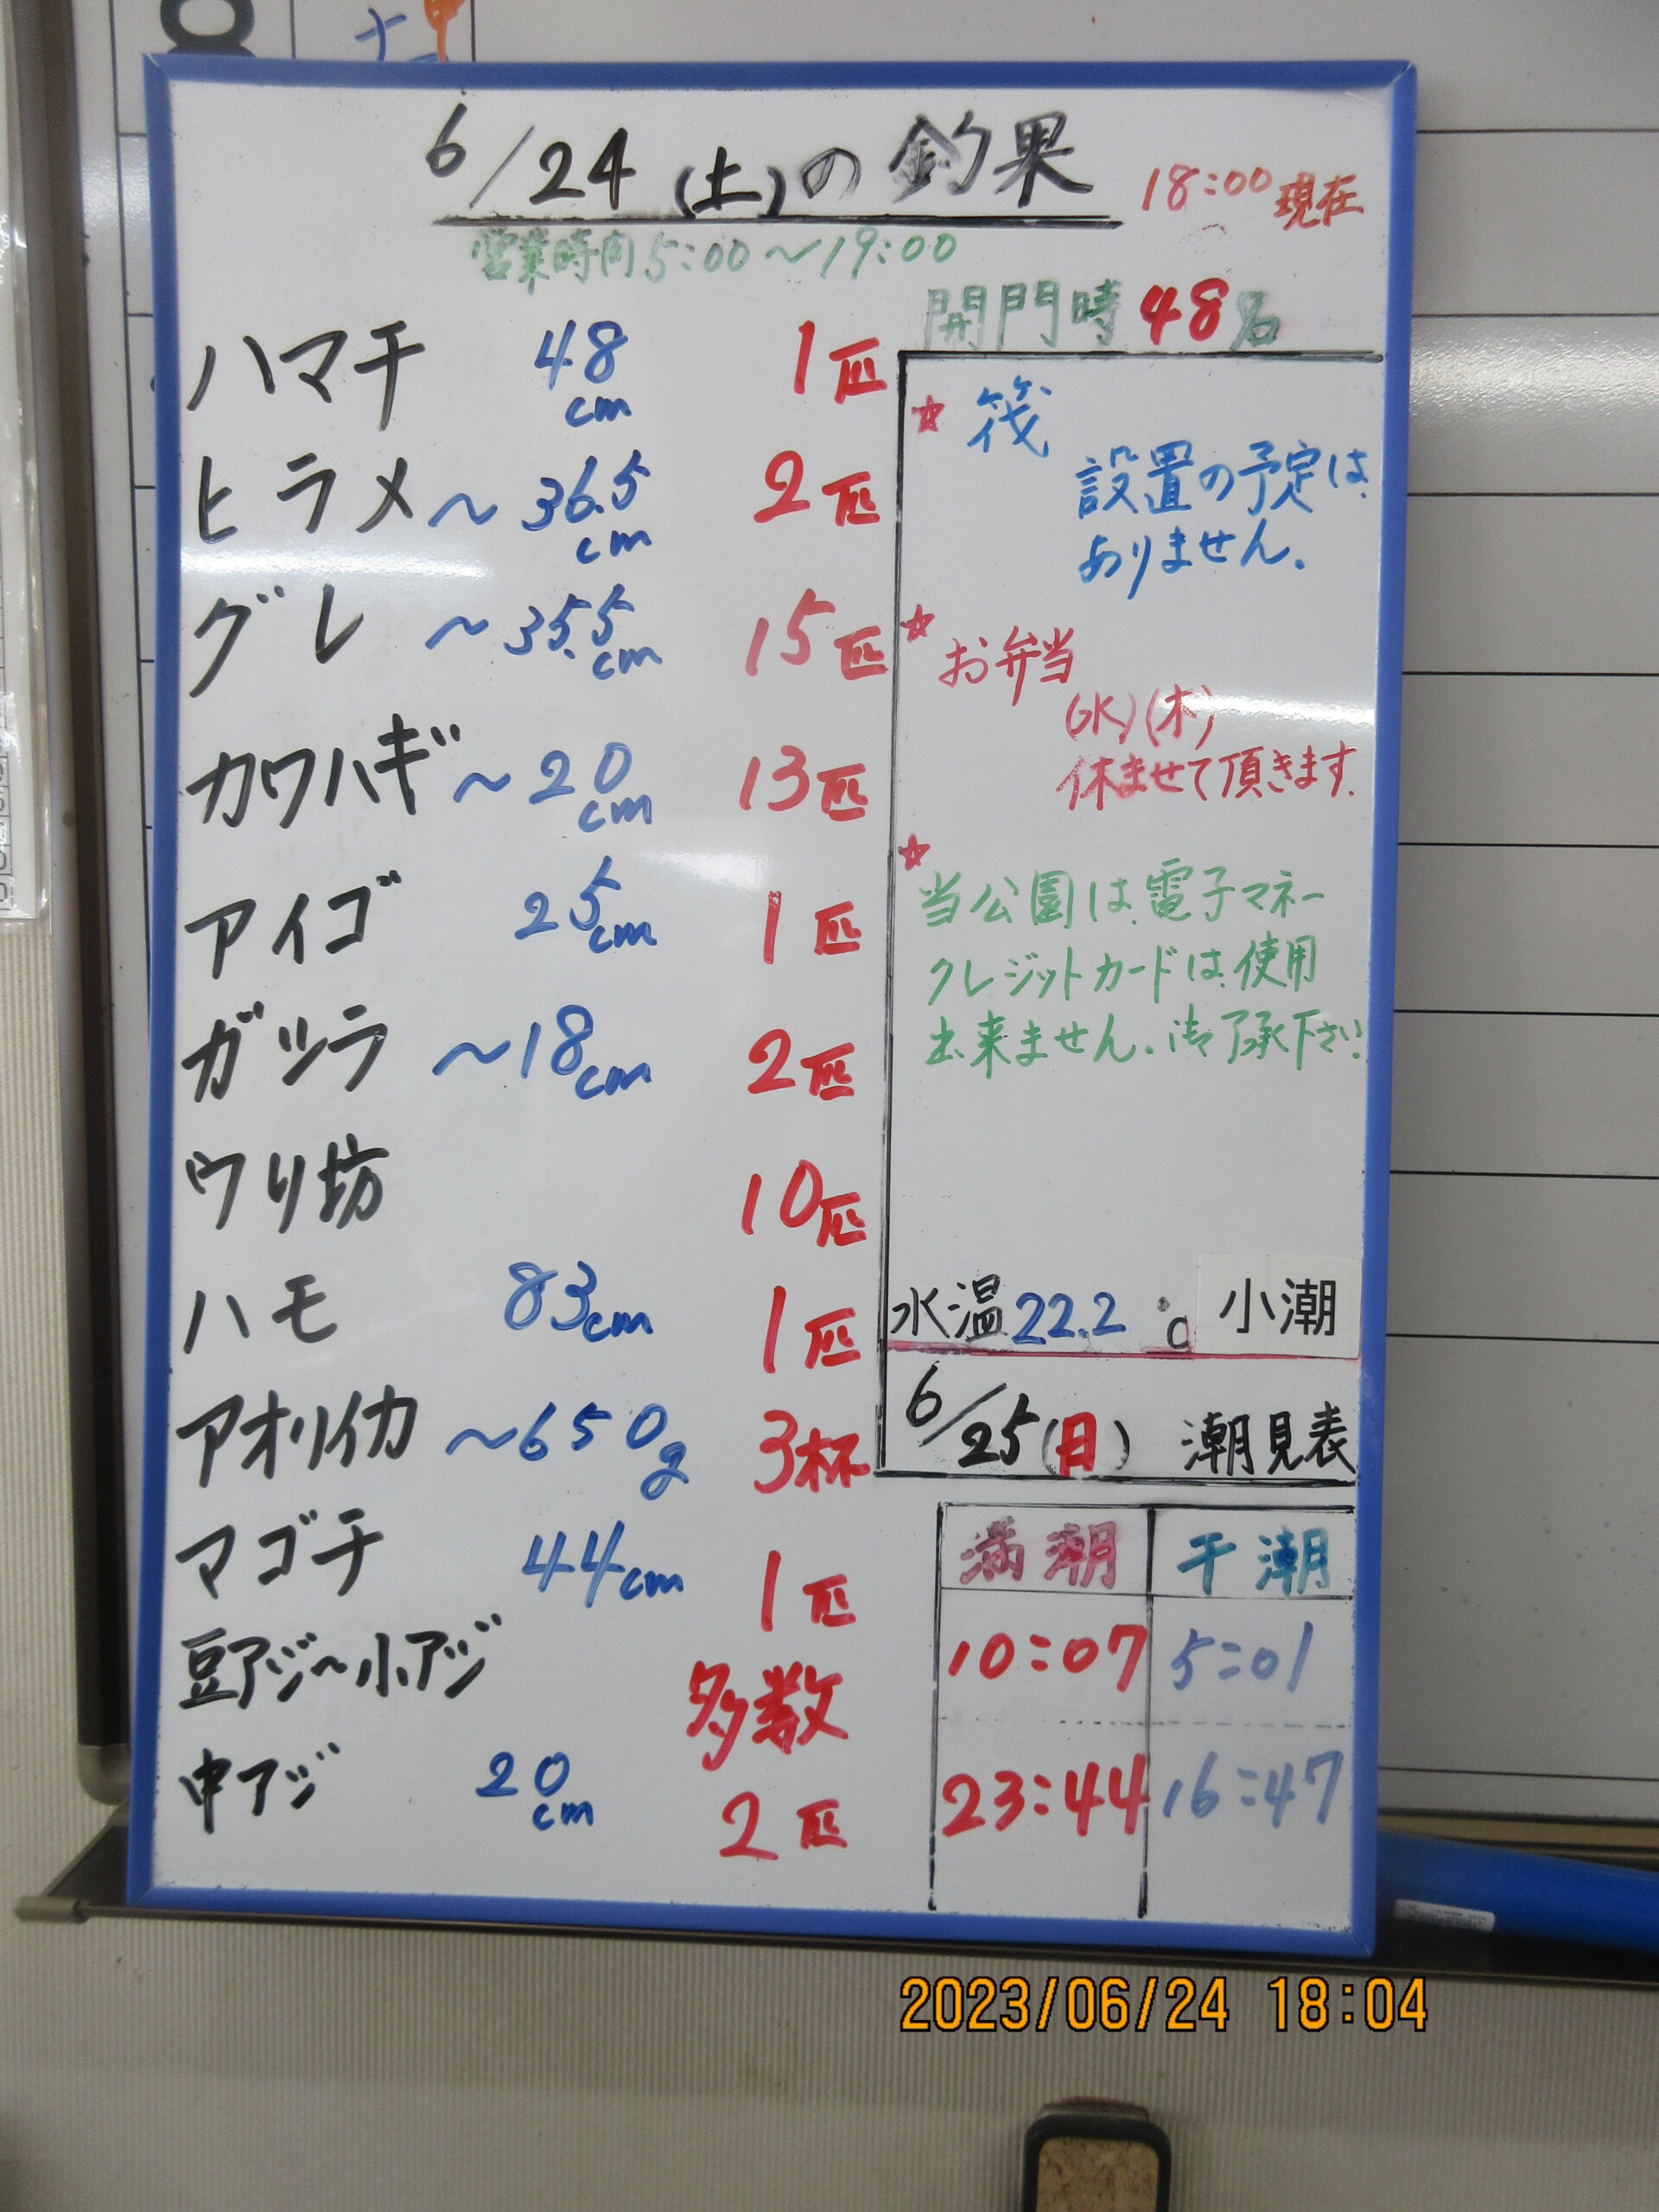 土
6/24(土)の釣果 18:00現在
営業時間5:00〜19:00
開門時48名
ハマチ 48cm 1匹
ヒラメ 〜36.5cm 2匹
グレ 〜35.5cm 15匹
カワハギ 〜20cm 13匹
アイゴ 25cm 1匹
ガシラ 〜18cm 2匹
ウリ坊 10匹
ハモ 83cm 1匹
アオリイカ 〜650g 3杯
マゴチ 44cm 1匹
豆アジ〜小アジ 多数
中アジ 20cm 2匹
☆筏
設置の予定は
ありません。
☆お弁当
(水)(木)
休ませて頂きます。
☆
当公園は電子マネー
クレジットカードは使用
出来ません。御了承下さい
水温22.2℃ 小潮
6/25(日) 潮見表
満潮 干潮
10:07 5:01
23:44 16:47
2023/06/24 18:04